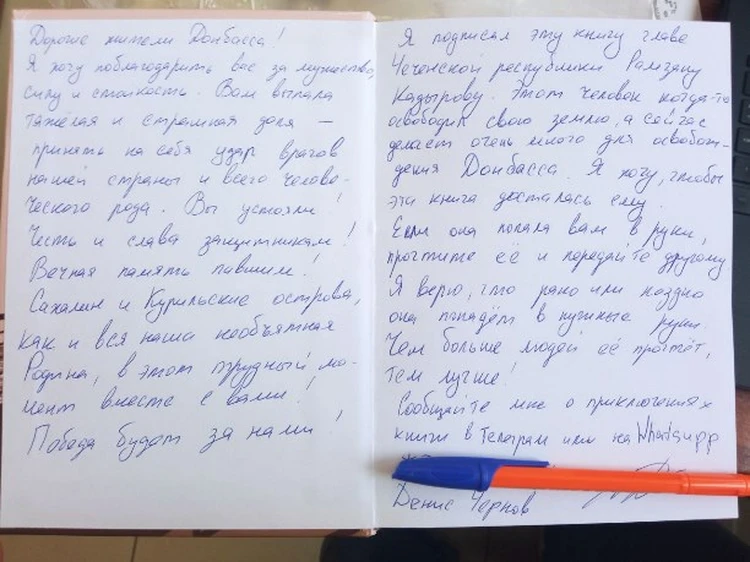 Дорогие жители Донбасса!
Я хочу поблагодарить вас за мужество,
силу и стойкость. Вам выпала
тяжёлая и страшная доля –
принять на себя удар врагов
нашей страны и всего челове-
ческого рода. Вы устояли!
Честь и слава защитникам!
Вечная память павшим!
Сахалин и Курильские острова,
как и вся наша необъятная
Родина, в этот трудный мо-
мент вместе с вами!
Победа будет за нами!
Я подписал эту книгу главе
Чеченской республики Рамзану
Кадырову. Этот человек когда-то
освободил свою землю, а сейчас
делает очень много для освобож-
дения Донбасса. Я хочу, чтобы
эта книга досталась ему.
Если она попала вам в руки,
прочтите её и передайте другому
Я верю, что рано или поздно
она попадёт в нужные руки.
Чем больше людей её прочтёт,
тем лучше!
Сообщайте мне о приключениях
книги в Телеграм или на Whatsapp
Денис Чернов